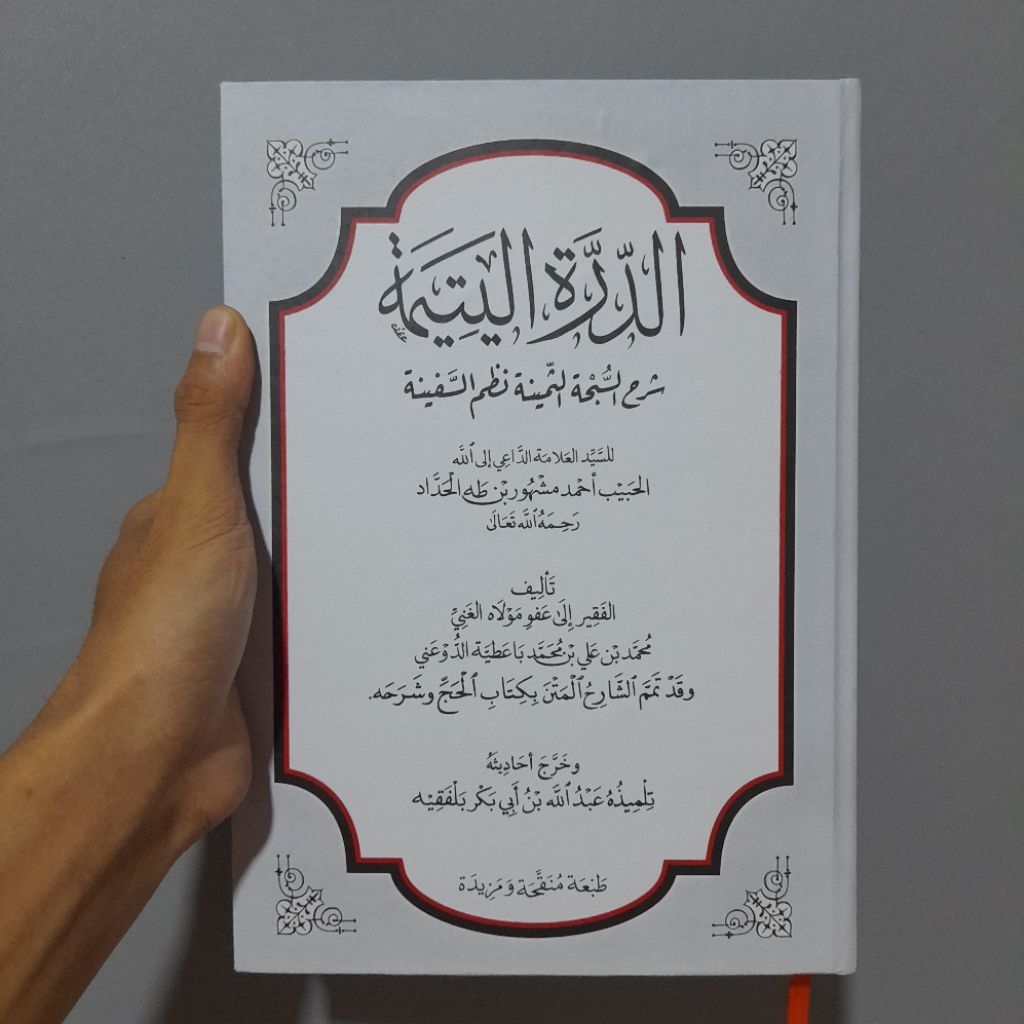 الدُّرَّة اليَتِيمَة
شرح السُّبْحَة الثَّمينة نظم السَّفينة
للسَّيِّد العَلامَة الدَّاعِي إلى ٱللَّه
الحَبِيْب أَحْمَد مَشْهُور بْن طٰه الْحَدَّاد
رَحِمَهُ ٱللَّه تَعَالَىٰ
تَأْلِيف
الفَقِير إِلَىٰ عَفوِ مَوْلَاه الغَنِيِّ
مُحَمَّد بْن عَلي بْن مُحَمَّد بَاعَطِيَّة الدُّوْعَني
وقَدْ تَمَّمَ ٱلشَّارِحُ ٱلْمَتْنَ بِكِتَابِ ٱلْحَجِّ وشَرَحَه.
وخَرَّجَ أحَادِيثَهُ
تِلْمِيذُهُ عَبْدُ ٱللَّه بْنُ أَبِي بَكْر بَلْفَقِيْه
طَبْعَة مُنَقَّحَة وَمَزِيدَة